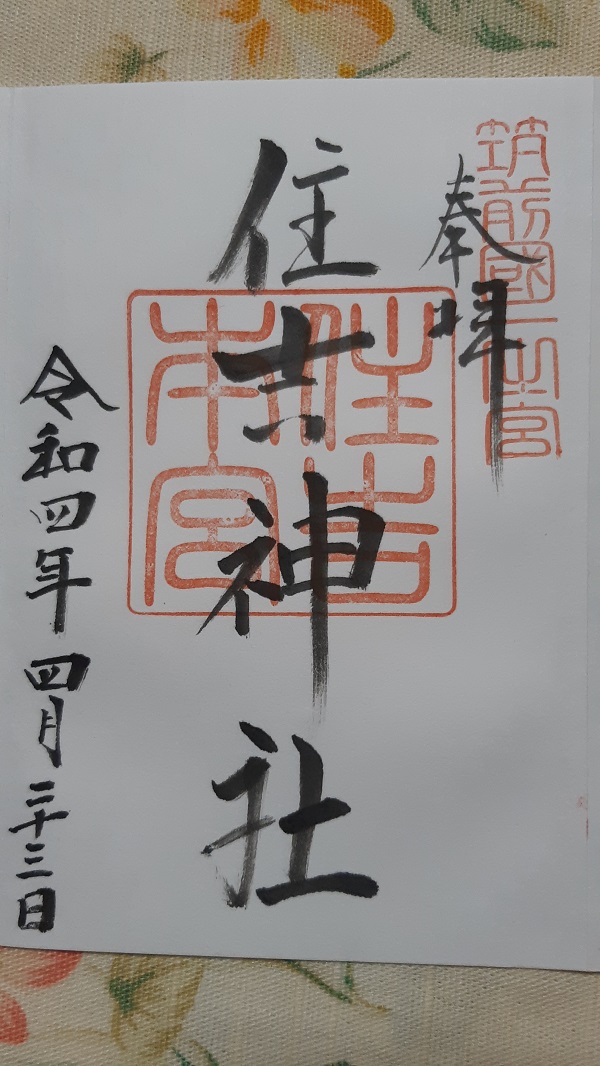 筑前國一之宮
奉拝
住吉神社
住吉本宮
令和四年四月二十三日